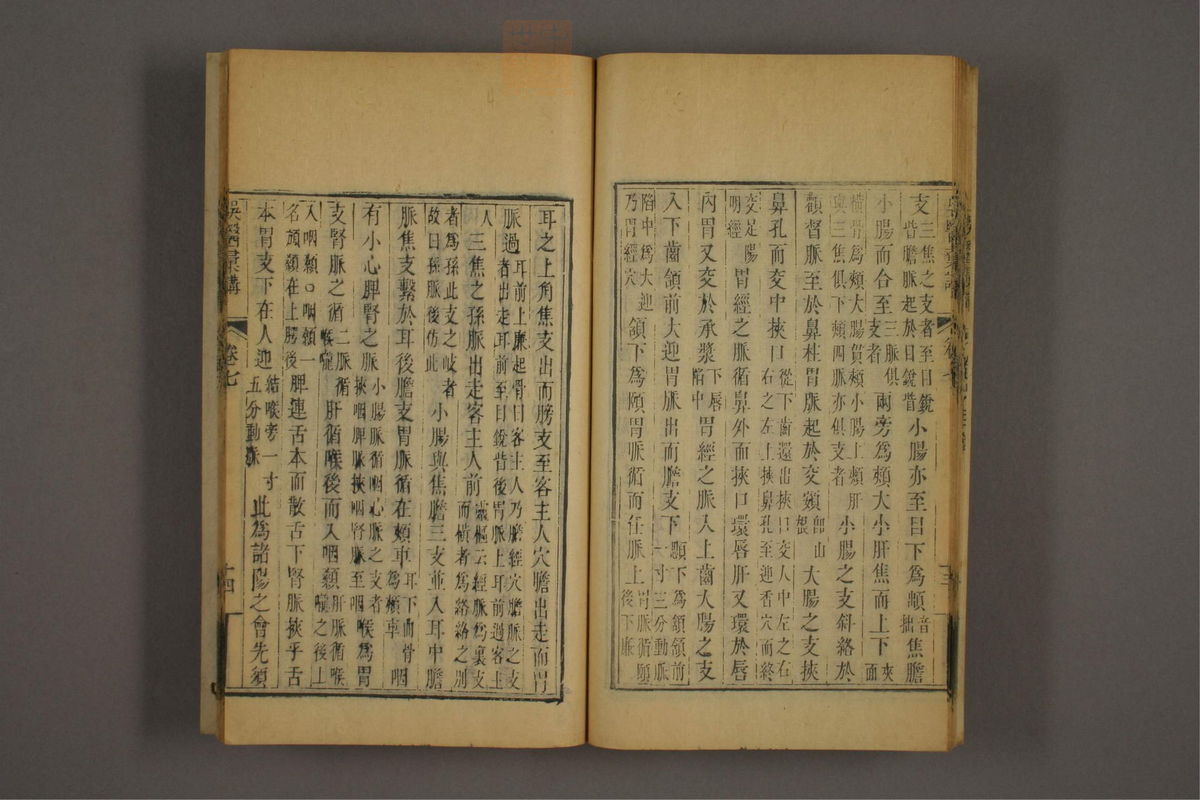 支三焦之支者至目銳眥膽脈起於目銳眥小腸亦至目下為䪼音拙焦膽
小腸而合至支者三脈俱兩旁為頰大小肝焦而上下夾面
橫骨為頰大腸貫頰小腸上頰肝與三焦俱下頰四脈亦俱支者小腸之支斜絡於
顴督脈至於鼻柱胃脈起於交頞即山根大腸之支挾
鼻孔而交中挾口從下齒還出挾口交人中左之右右之左上挾鼻孔至迎香穴而終
交足陽明經胃經之脈循鼻外而挾口環唇肝又環於唇
內胃又交於承漿下唇陷中胃經之脈入上齒大腸之支
入下齒頷前大迎胃脈出而膽支下䪼下為頷頷前一寸三分動脈
陷中為大迎乃胃經穴頷下為頤胃脈循而任脈上胃脈循頤後下廉
耳之上角焦支出而膀支至客主人穴膽出走而胃
脈過耳前上廉起骨曰客主人乃膽經穴膽脈之支者出走耳前至目銳眥後胃脈上耳前過客主
人三焦之孫脈出走客主人前靈樞云經脈為裏支而橫者為絡絡之別
者為孫此支之岐者故曰孫脈後仿此小腸與焦膽三支並入耳中膽
脈焦支繫於耳後膽支胃脈循在頰車耳下曲骨為頰車咽
有小心脾腎之脈小腸脈循咽心脈之支者挾咽脾脈挾咽腎脈至咽喉為胃
支腎脈之循二脈循喉嚨肝循喉後而入咽顙肝脈循喉嚨之後上
入咽顙口咽顙一名頏顙在上腭後脾連舌本而散舌下腎脈挾乎舌
本胃支下在人迎結喉旁一寸五分動脈此為諸陽之會先須
吳醫彙講
卷七
十四